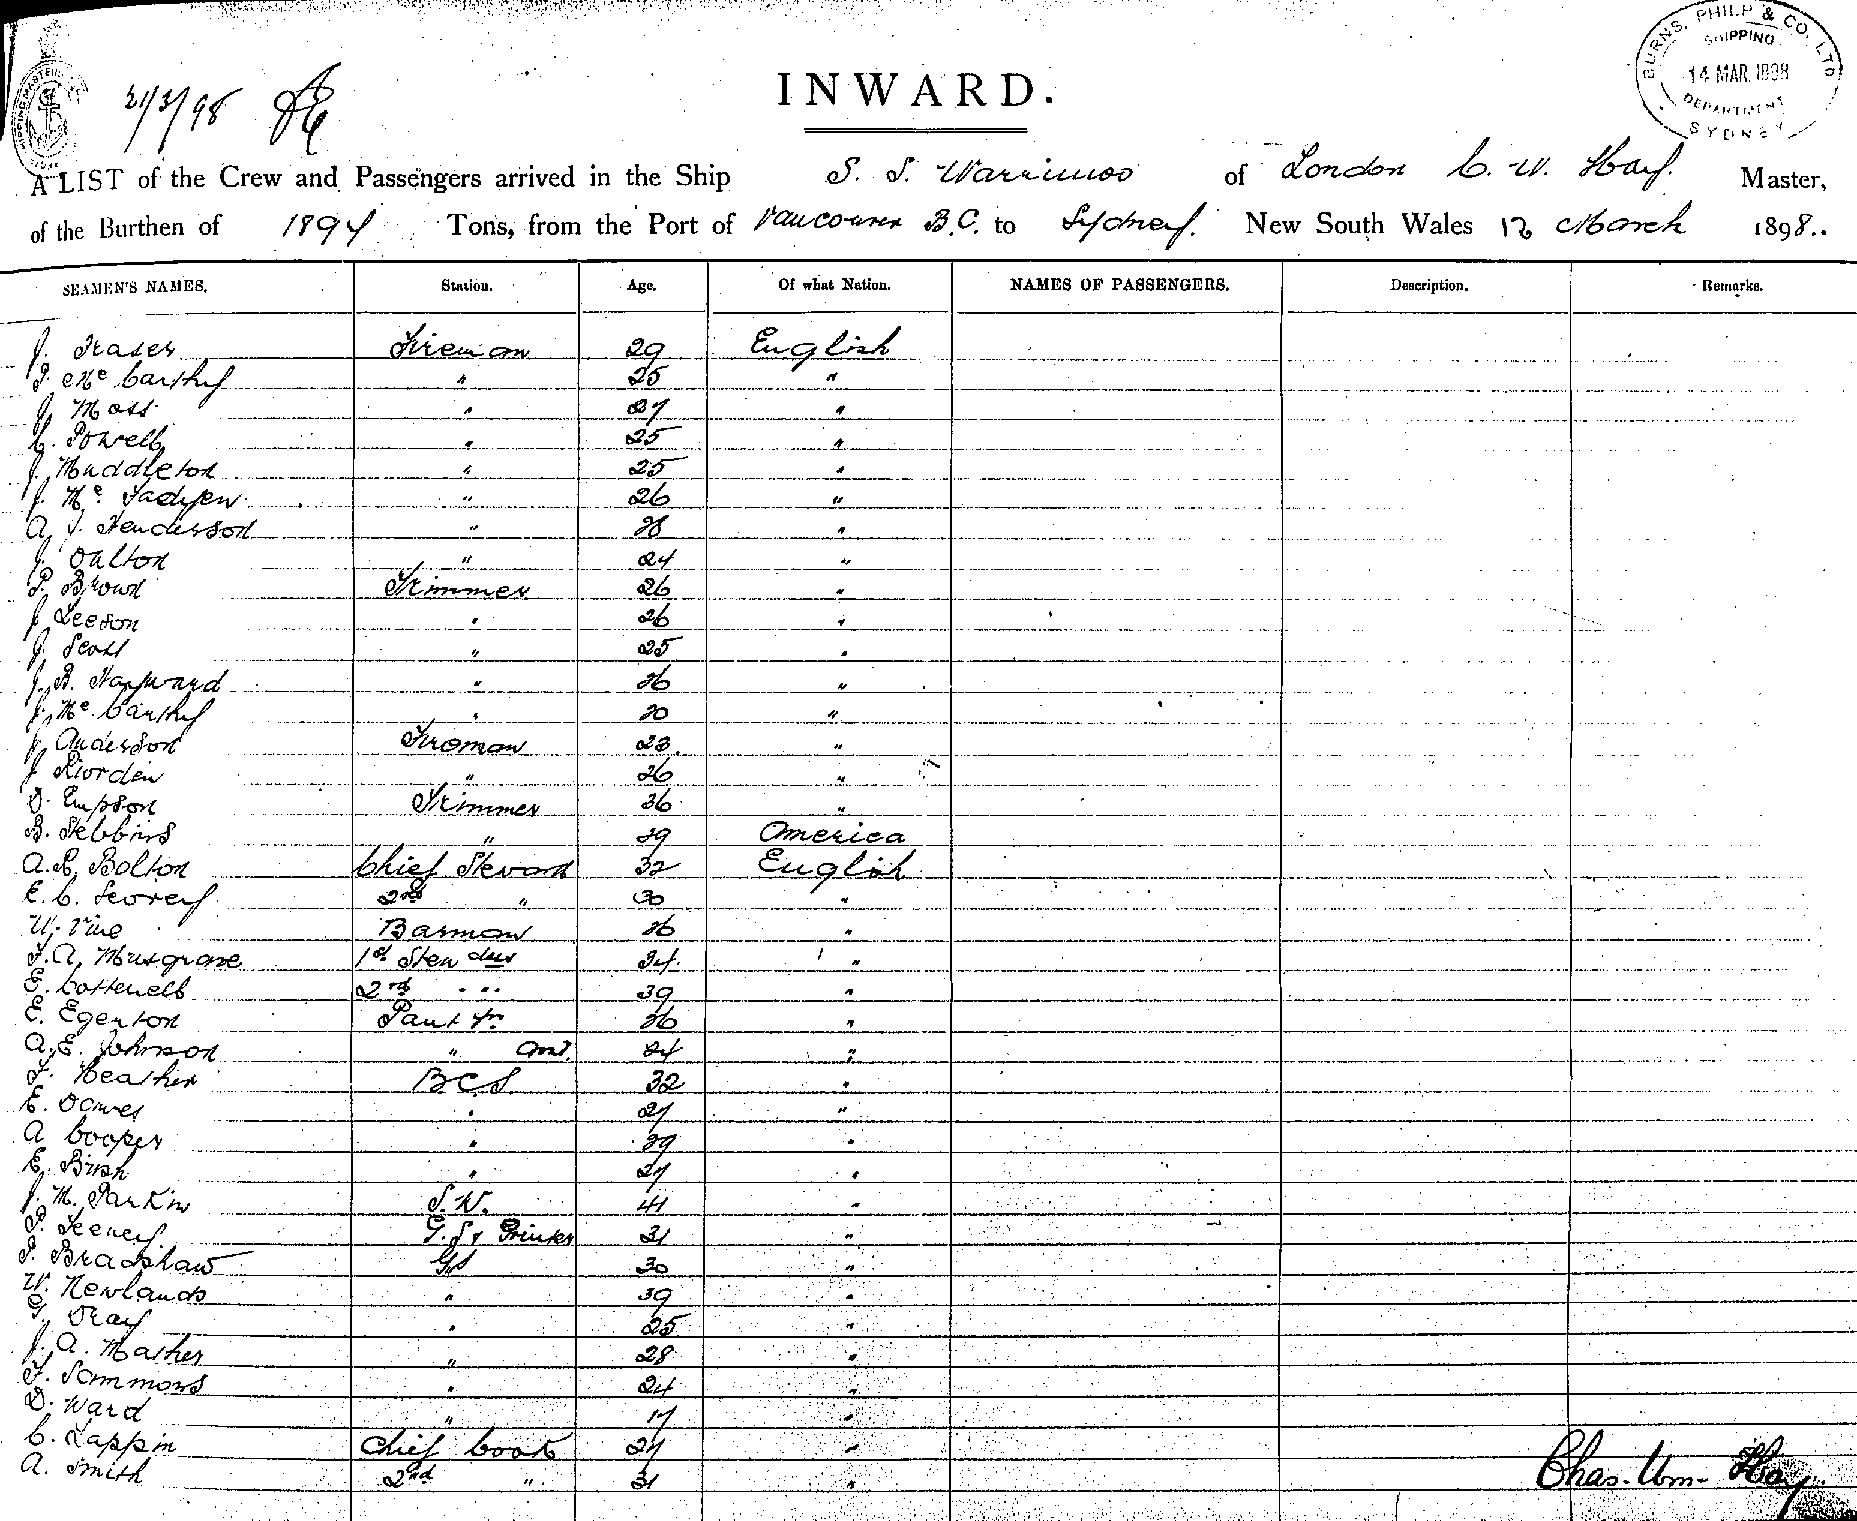 BURNS, PHILP & CO. LTD
SHIPPING
14 MAR 1898
DEPARTMENT
SYDNEY
21/3/98
INWARD.
A LIST of the Crew and Passengers arrived in the Ship S. S. Warrimoo of London C. W. Hay. Master,
of the Burthen of 1894 Tons, from the Port of Vancouver B.C. to Sydney. New South Wales 12 March 1898..
SEAMEN'S NAMES. Station. Age. Of what Nation. NAMES OF PASSENGERS. Description. Remarks.
J. Fraser Fireman 29 English
P. McCarthy " 25 "
J. Moss " 27 "
C. Powell " 25 "
J. Muddleton " 25 "
J. Mc Fadyen " 26 "
A. J. Henderson " "
J. Dalton " 24 "
P. Brown Trimmer 26 "
J. Leeson " 26 "
J. Scott " 25 "
J. B. Hayward " 26 "
J. McCarthy " 20 "
J. Anderson Fireman 23 "
J. Riorden " 26 "
D. Empson Trimmer 36 "
B. Stebbins " 29 America
A. R. Bolton Chief Steward 32 English
E. C. Scorey 2nd " 30 "
W. Vine Barman 26 "
F. A. Musgrove 1st Stewdess 34 "
E. Cottenell 2nd " 39 "
E. Egerton Pantryn 26 "
A. E. Johnson " Asst. 24 "
F. Heather B.C.S. 32 "
E. Dawes " 27 "
A Cooper " 29 "
E. Bush " 27 "
J. M. Parkin S.W. 41 "
P. Feeney G.S & Printer 31 "
P. Bradshaw GS 30 "
W. Newlands " 39 "
G. Dray " 25 "
J. A. Mather " 28 "
F. Sammons " 24 "
D. Ward " 17 "
C. Lappin Chief Cook 27 "
A. Smith 2nd " 31 "
Chas. Wm. Hay